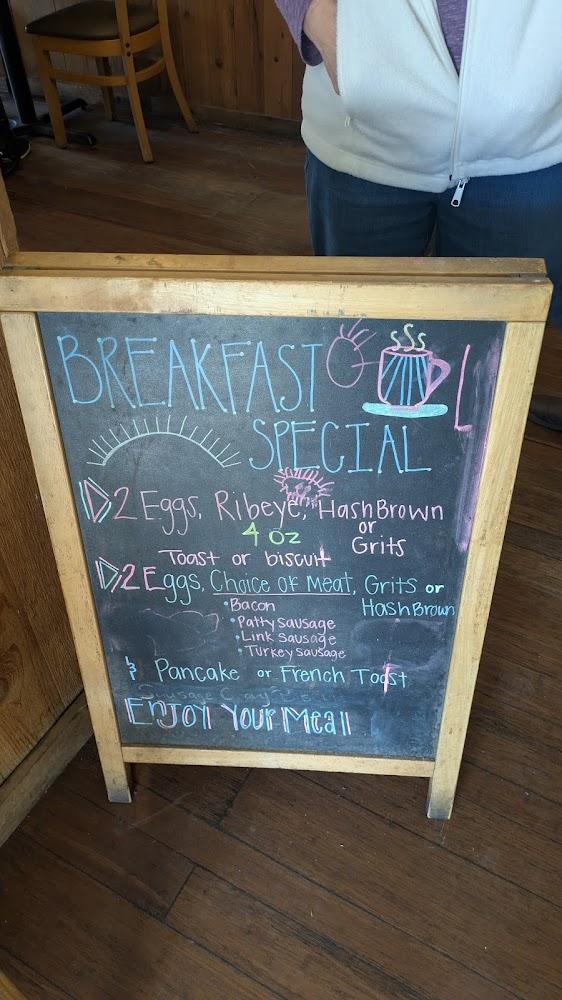 BREAKFAST
SPECIAL
2 Eggs, Ribeye, HashBrown
4 oz
or
Grits
Toast or biscuit
2 Eggs, Choice Of Meat, Grits or
HashBrown
• Bacon
• Patty sausage
• Link sausage
• Turkey sausage
& Pancake or French Toast
Enjoy Your Meal